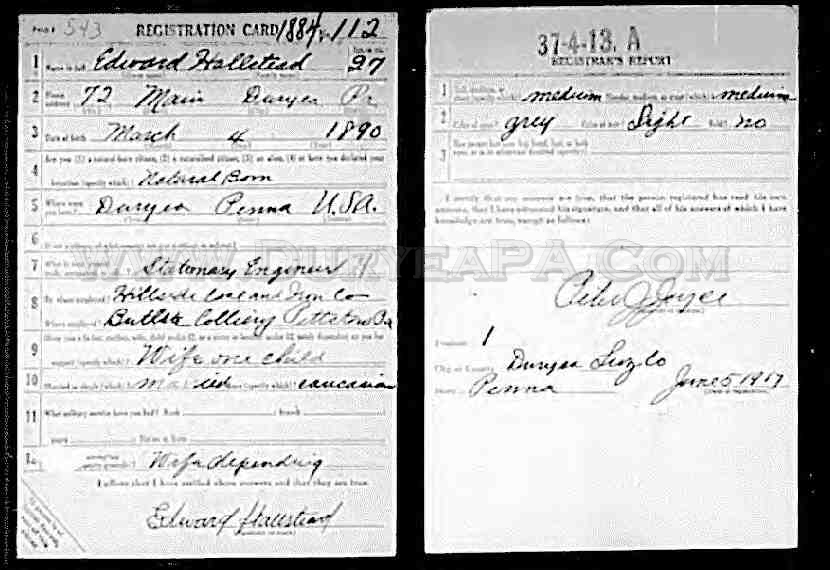 Form 1 543 REGISTRATION CARD 1884 No. 112
1 Name in full Edward Hallstead 27
2 Home address 72 Main Duryea Pa
3 Date of birth March 4 1890
4 Are you (1) a natural-born citizen, (2) a naturalized citizen, (3) an alien, (4) or have you declared your
intention (specify which)? Natural Born
5 Where were you born? Duryea Penna U.S.A.
6 If not a citizen, of what country are you a citizen or subject?
7 What is your present trade, occupation Stationary Engineer
8 By whom employed? Hillside Coal and Iron Co
Where employed? Butler Colliery Pittston Pa
9 Have you a father, mother, wife, child under 12, or a sister or brother under 12, solely dependent on you for
support (specify which)? Wife one child
10 Married or single (which)? Married Race (specify which)? Caucasian
11 What military service have you had? Rank branch
years Nation or State
12 Wife depending
I affirm that I have verified above answers and that they are true.
Edward Hallstead
37-4-13. A
REGISTRAR'S REPORT
1 medium Slender, medium, or stout (which)? medium
2 Color of eyes? grey Color of hair? Light Bald? no
3 Has person lost arm, leg, hand, foot, or both
eyes, or is he otherwise disabled (specify)?
I certify that my answers are true, that the person registered has read his own
answers, that I have witnessed his signature, and that all of his answers of which I have
knowledge are true, except as follows:
WWW.DURYEAPA.COM
Peter J Joyce
Precinct 1
City or County Duryea Luz Co
State Penna June 5 1917